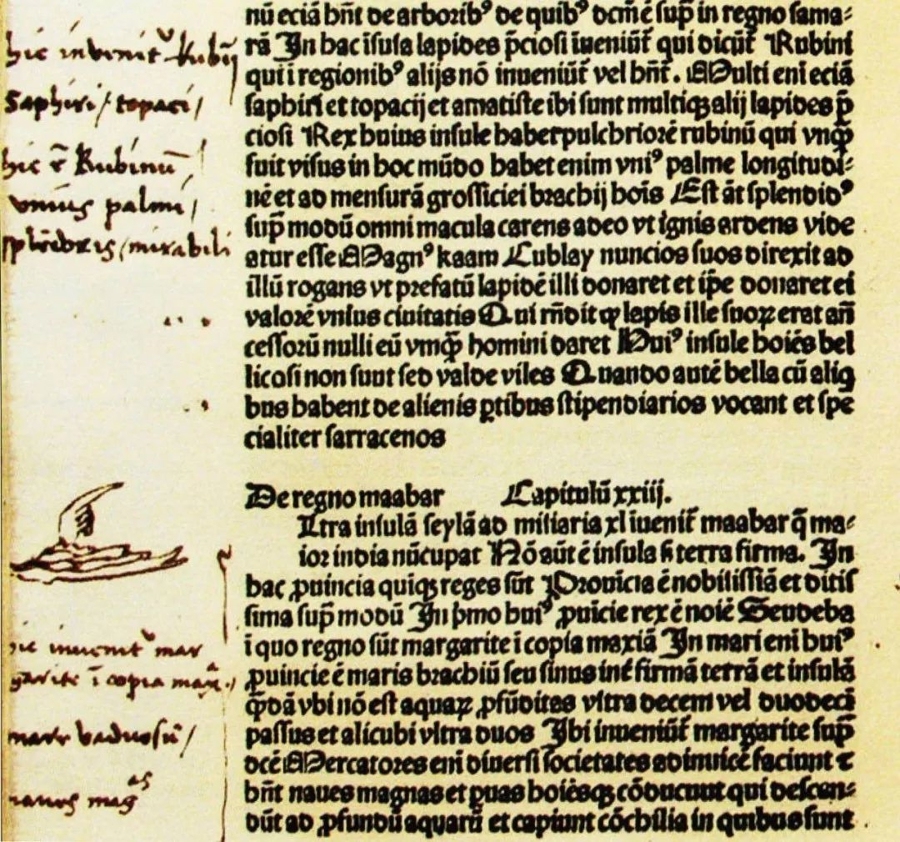 nū eciā hn̄t de arboribꝰ de quibꝰ dcm̄ ē sup̄ in regno sama⸗
rā In hac īsula lapides p̄ciosi īueniūt̄ qui dicūt̄ Rubini
qui ī regionibꝰ alijs nō inueniūt̄ vel hn̄t. Multi eni eciā
saphiri et topacij et amatiste ibi sunt multiqꝫ alij lapides p̄
ciosi Rex huius insule habet pulchriorē rubinū qui vnqꝫ̄
fuit visus in hoc mūdo habet enim vniꝰ palme longitudi⸗
nē et ad mensurā grossiciei brachij hoīs Est āt splendidꝰ
sup̄ modū omni macula carens adeo vt ignis ardens vide
atur esse Magnꝰ kaam Cublay nuncios suos direxit ad
illū rogans vt prefatū lapidē illi donaret et ip̄e donaret ei
valorē vnius ciuitatis Qui rn̄dit ꝙ lapis ille suoꝝ erat an̄
cessorū nulli eū vmqꝫ̄ homini daret Huiꝰ insule hoiēs bel
licosi non sunt sed valde viles Quando autē bella cū aliq̄
bus habent de alienis ꝑtibus stipendiarios vocant et spe
cialiter sarracenos
De regno maabar Capitulū xxiij.
Ltra insulā seylā ad miliaria xl īuenit̄ maabar q̄ ma⸗
ior india nūcupat Nō aūt ē insula s̄ terra firma. In
hac ꝓuincia quiqꝫ reges sūt Prouīcia ē nobilissīa et ditis
sima sup̄ modū In p̄mo huiꝰ ꝓuīcie rex ē noīe Seudeba
ī quo regno sūt margarite ī copia maxīa In mari eni huiꝰ
ꝓuincie ē maris brachiū seu sinus int̄ firmā terrā et insulā
q̄dā vbi nō est aquaꝝ ꝓfūditas vltra decem vel duodecī
passus et alicubi vltra duos Ibi inueniūt̄ margarite sup̄
dcē Mercatores eni diuersi societates adinuicē faciunt ⁊
hn̄t naues magnas et ꝑuas hoiēsqꝫ cōducunt qui descen⸗
dūt ad ꝓfundū aquarū et capiunt cōchilia in quibus sunt
hic invenit̄ Rubī
Saphiri / topaci /
hic ē Rubinū
vnius palmi /
splēdoris / mirabili
hic inuenit̄ mar
garite ī copia max.
mare vadosū /
naues mag^as